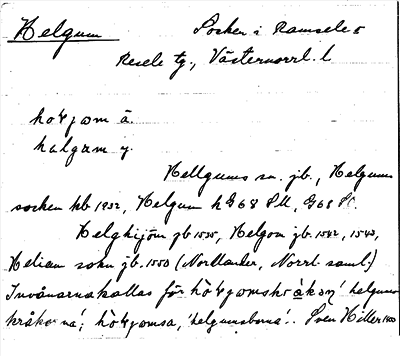 Helgum Socken i Ramsele o
Resele tg., Västernorrl. l
hôlgom ä.
halgum y.
Hellgums sn. jb., Helgums
socken kb. 1932, Helgum hG68 SM, G68 
Helghijöm jb 1535, Helgom jb. 1542, 1543,
Heliam sokn jb. 1550 (Nordlander, Norrl. saml.)
Invånarna kallas för 'helgums-
kråkorna'; 'helgumsborna'. Sven Hiller 1900